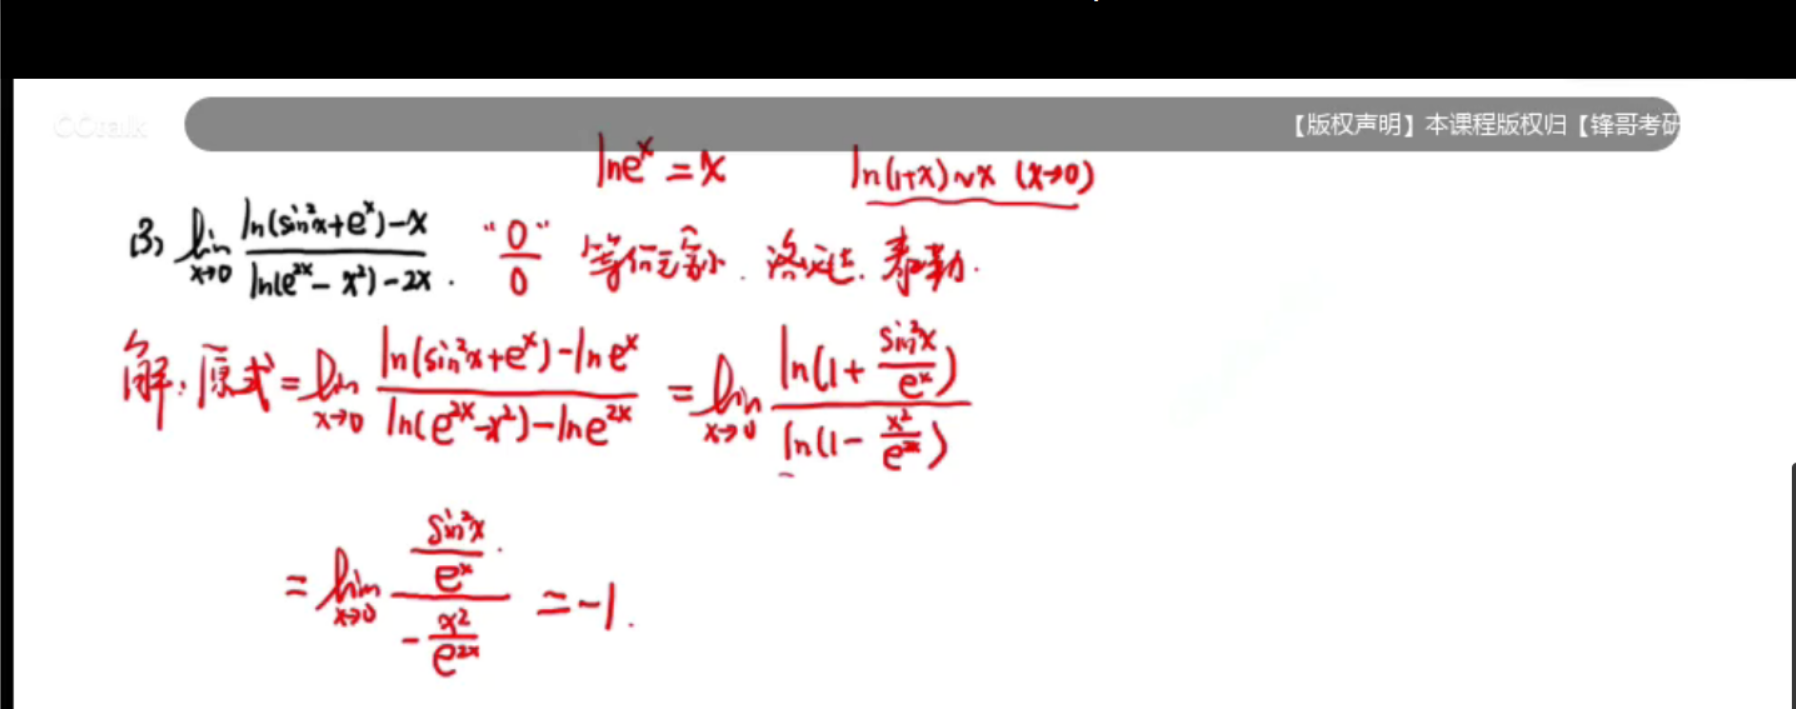 CCtalk
【版权声明】本课程版权归【锋哥考研
lne^x = x    ln(1+x)~x (x→0)
(3) lim_{x→0} [ln(sin²x+e^x)-x] / [ln(e^{2x}-x²)-2x] . "0/0" 等价无穷小. 洛必达. 泰勒.
解:原式 = lim_{x→0} [ln(sin²x+e^x)-lne^x] / [ln(e^{2x}-x²)-lne^{2x}] = lim_{x→0} [ln(1+ sin²x/e^x)] / [ln(1- x²/e^{2x})]
= lim_{x→0} [sin²x/e^x] / [- x²/e^{2x}] = -1.